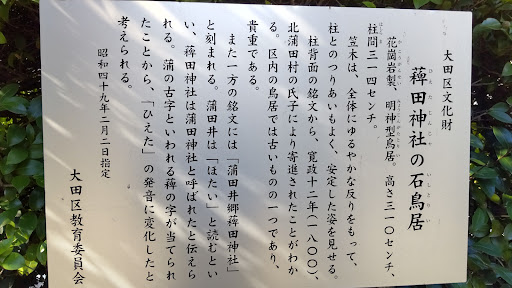 大田区文化財
薭田神社の石鳥居
ひえ た じんじゃ いしどりい
花崗岩製、明神型鳥居。高さ三一〇センチ、
かこうがんせい みょうじんがたとりい
柱間三一四センチ。
はしらま
笠木は、全体にゆるやかな反りをもって、
柱とのつりあいもよく、安定した姿を見せる。
柱背面の銘文から、寛政十二年(一八〇〇)、
北蒲田村の氏子により寄進されたことがわか
る。区内の鳥居では古いものの一つであり、
貴重である。
また一方の銘文には「蒲田井郷薭田神社」
と刻まれる。蒲田井は「ほたい」と読むとい
い、薭田神社は蒲田神社と呼ばれたと伝えら
れる。蒲の古字といわれる薭の字が当てられ
たことから、「ひえた」の発音に変化したと
考えられる。
昭和四十九年二月二日指定
大田区教育委員会